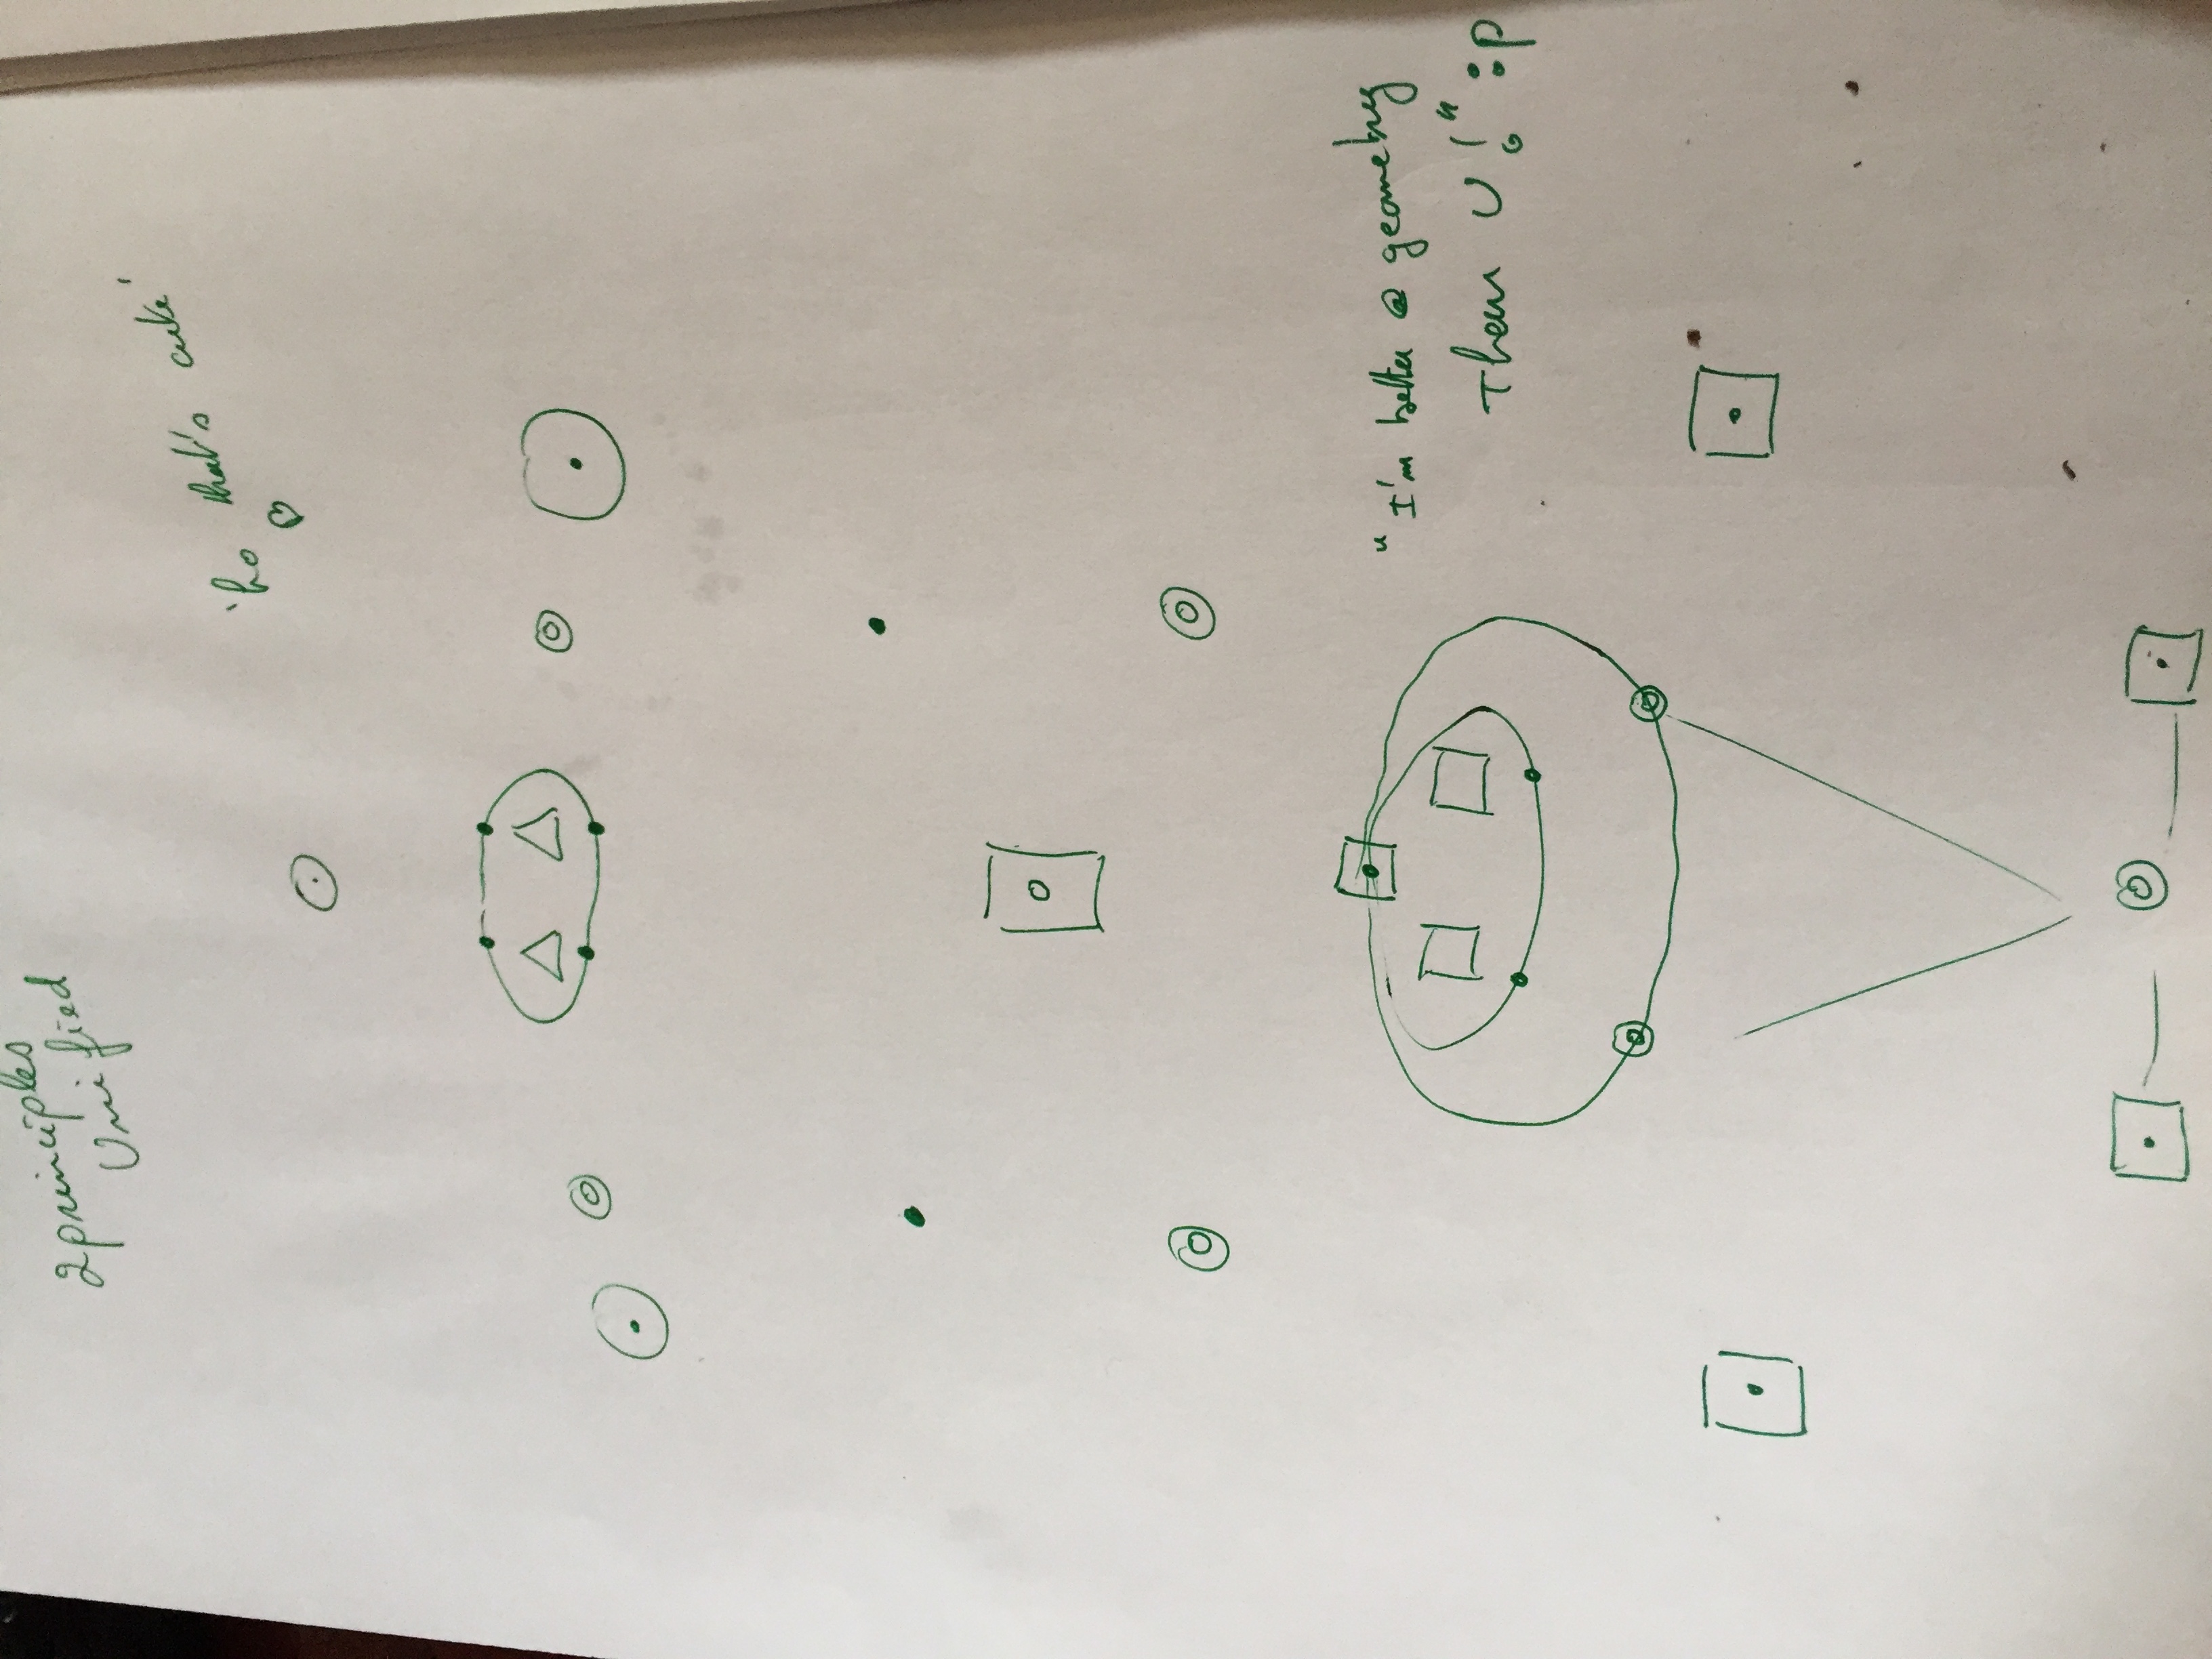 2 principles
Unified
'ho that's cute'
"I'm better @ geometry
Then U!" :p